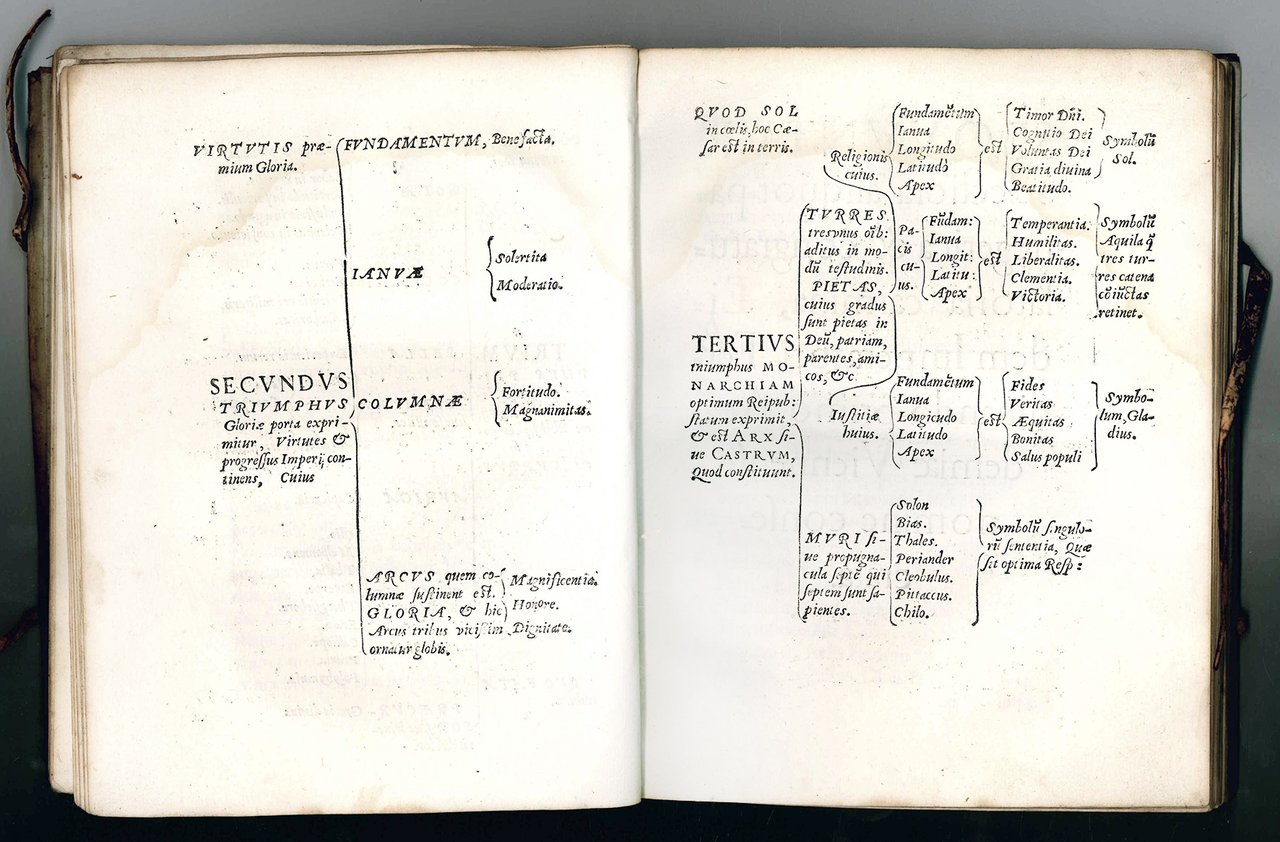 VIRTVTIS præ-
mium Gloria.
FVNDAMENTVM, Benefacta.
IANVÆ
Solertita
Moderatio.
SECVNDVS
TRIVMPHVS
Gloriæ porta expri-
mitur, Virtutes &
progressus Imperij con-
tinens, Cuius
COLVMNÆ
Fortitudo.
Magnanimitas.
ARCVS quem co-
lumnæ sustinent est.
GLORIA, & hic
Arcus tribus vicissim
ornatur globis.
Magnificentia.
Honore.
Dignitate.
QVOD SOL
in cœlis, hoc Cæ-
sar est in terris.
Religionis
cuius.
Fundamētum
Ianua
Longitudo
Latitudo
Apex
est
Timor Dñi.
Cognitio Dei
Voluntas Dei
Gratia divina
Beatitudo.
Symbolū
Sol.
TVRRES
tres vnus oīb:
aditus in mo-
dū testudinis.
PIETAS,
cuius gradus
sunt pietas in
Deū, patriam,
parentes, ami-
cos, &c
Pa-
cis
cu-
ius.
Fūdam:
Ianua
Longit:
Latitu:
Apex
est
Temperantia.
Humilitas.
Liberalitas.
Clementia.
Victoria.
Symbolū
Aquila q̄
tres tur-
res catena
cōiūctas
retinet.
TERTIVS
triumphus MO-
NARCHIAM
optimum Reipub:
statum exprimit,
& est ARX si-
ue CASTRVM,
Quod constituunt.
Iustitiæ
huius.
Fundamētum
Ianua
Longitudo
Latitudo
Apex
est
Fides
Veritas
Æquitas
Bonitas
Salus populi
Symbo-
lum, Gla-
dius.
MVRI si-
ue propugna-
cula septē qui
septem sunt sa-
pientes.
Solon
Bias.
Thales.
Periander
Cleobulus.
Pittaccus.
Chilo.
Symbolū singulo-
rū sententia, Quæ
sit optima Resp: